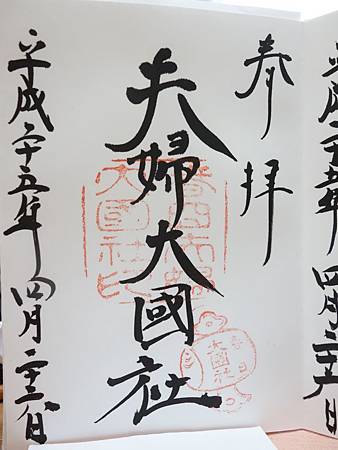 平成二十五年 四月二十六日
奉拝
夫婦大國社
春日
大國社
平成二十五年 四月二十六日